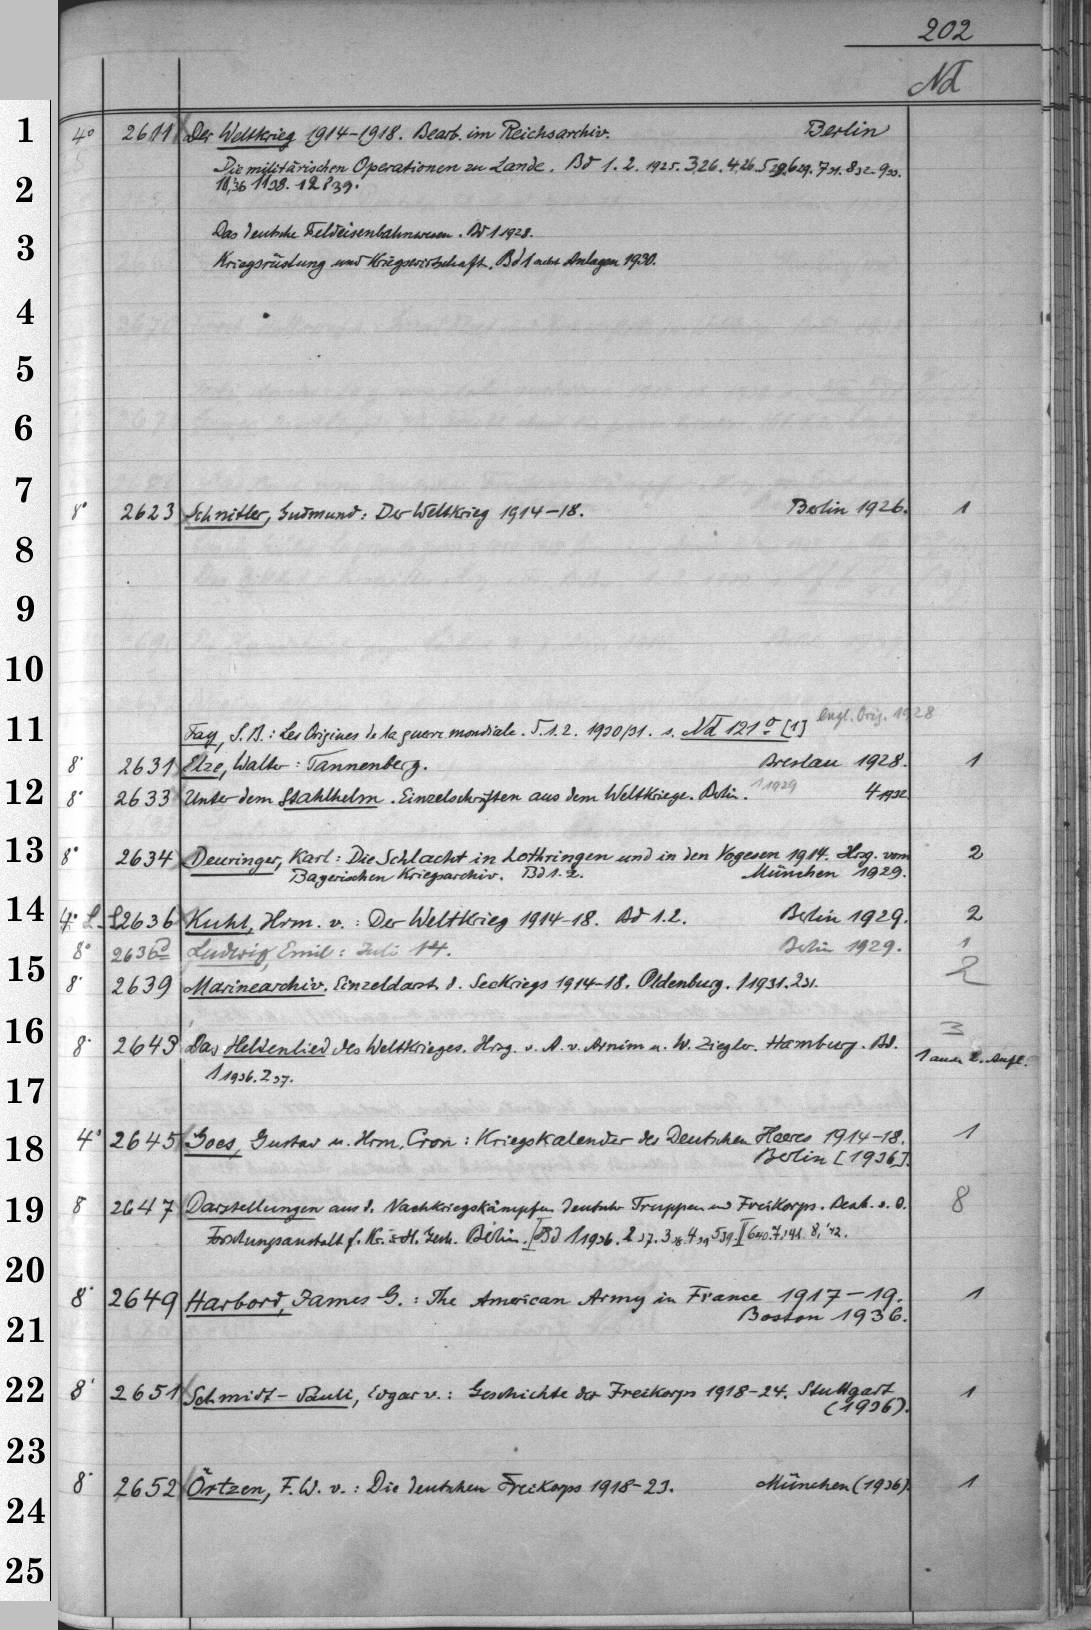 202
Nd
1
4° 2611 Der Weltkrieg 1914-1918. Bearb. im Reichsarchiv. Berlin
Die militärischen Operationen zu Lande. Bd 1. 2. 1925. 3,26. 4,26. 5 29. 6 29. 7 31. 8 32. 9 33.
2
10,36 11 38. 12 39.
Das deutsche Feldeisenbahnwesen. Bd 1 1928.
3
Kriegsrüstung und Kriegswirtschaft. Bd 1 nebst Anlagen 1930.
4
5
6
7
8° 2623 Schnitler, Gudmund: Der Weltkrieg 1914-18. Berlin 1926. 1
8
9
10
engl. Orig. 1928
11
Fay, S. B.: Les Origines de la guerre mondiale. T. 1. 2. 1930/31. s. Nd 121ᵃ [1]
8° 2631 Elze, Walter: Tannenberg. Breslau 1928. 1
12
8° 2633 Unter dem Stahlhelm. Einzelschriften aus dem Weltkriege. Berlin. 1 1929 4 1932
13
8° 2634 Deuringer, Karl: Die Schlacht in Lothringen und in den Vogesen 1914. Hrsg. vom 2
Bayerischen Kriegsarchiv. Bd 1. 2. München 1929.
14
4° L 2636 Kuhl, Hrm. v.: Der Weltkrieg 1914-18. Bd 1. 2. Berlin 1929. 2
8° 2636ᵃ Ludwig, Emil: Juli 14. Berlin 1929. 1
15
8° 2639 Marinearchiv. Einzeldarst. d. Seekriegs 1914-18. Oldenburg. 1 1931. 2 31. 2
16
3
8° 2643 Das Heldenlied des Weltkrieges. Hrsg. v. A. v. Arnim u. W. Ziegler. Hamburg. Bd. 1 auch 2. Aufl.
1 1936. 2 37.
17
18
4° 2645 Goes, Gustav u. Hrm. Cron: Kriegskalender des Deutschen Heeres 1914-18. 1
Berlin [1936].
19
8° 2647 Darstellungen aus d. Nachkriegskämpfen deutscher Truppen und Freikorps. Bearb. v. d. 8
Forschungsanstalt f. Kr.- u. H. Gesch. Berlin. I Bd 1 1936. 2 37. 3 38. 4 39 5 39. II 6 40. 7, 41. 8, '42.
20
8° 2649 Harbord, James G.: The American Army in France 1917-19. 1
Boston 1936.
21
22
8° 2651 Schmidt-Pauli, Edgar v.: Geschichte der Freikorps 1918-24. Stuttgart 1
(1936).
23
8° 2652 Örtzen, F. W. v.: Die deutschen Freikorps 1918-23. München (1936) 1
24
25